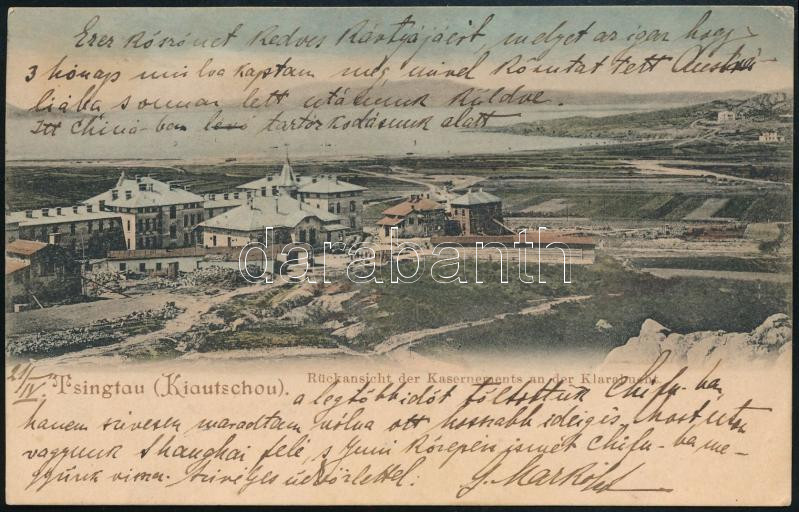 Ezer köszönet kedves kártyájáért, melyet az igaz hogy
3 hónap mulva kaptam meg mivel körutat tett Austrá-
liába s onnan lett utánunk küldve.
Itt China-ban levő tartózkodásunk alatt
darabanth
21/IV.
Tsingtau (Kiautschou).
Rückansicht der Kasernements an der Klarabucht.
a legtöbb időt töltöttük Chifu-ba,
hanem szivesen maradtam volna ott hosszabb ideig is, most uton
vagyunk Shanghai felé, s Juni közepén ismét Chifu-ba me-
gyünk vissza. Szivélyes üdvözlettel: